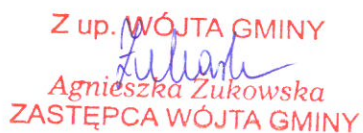 Z up. WÓJTA GMINY
Agnieszka Żukowska
ZASTĘPCA WÓJTA GMINY